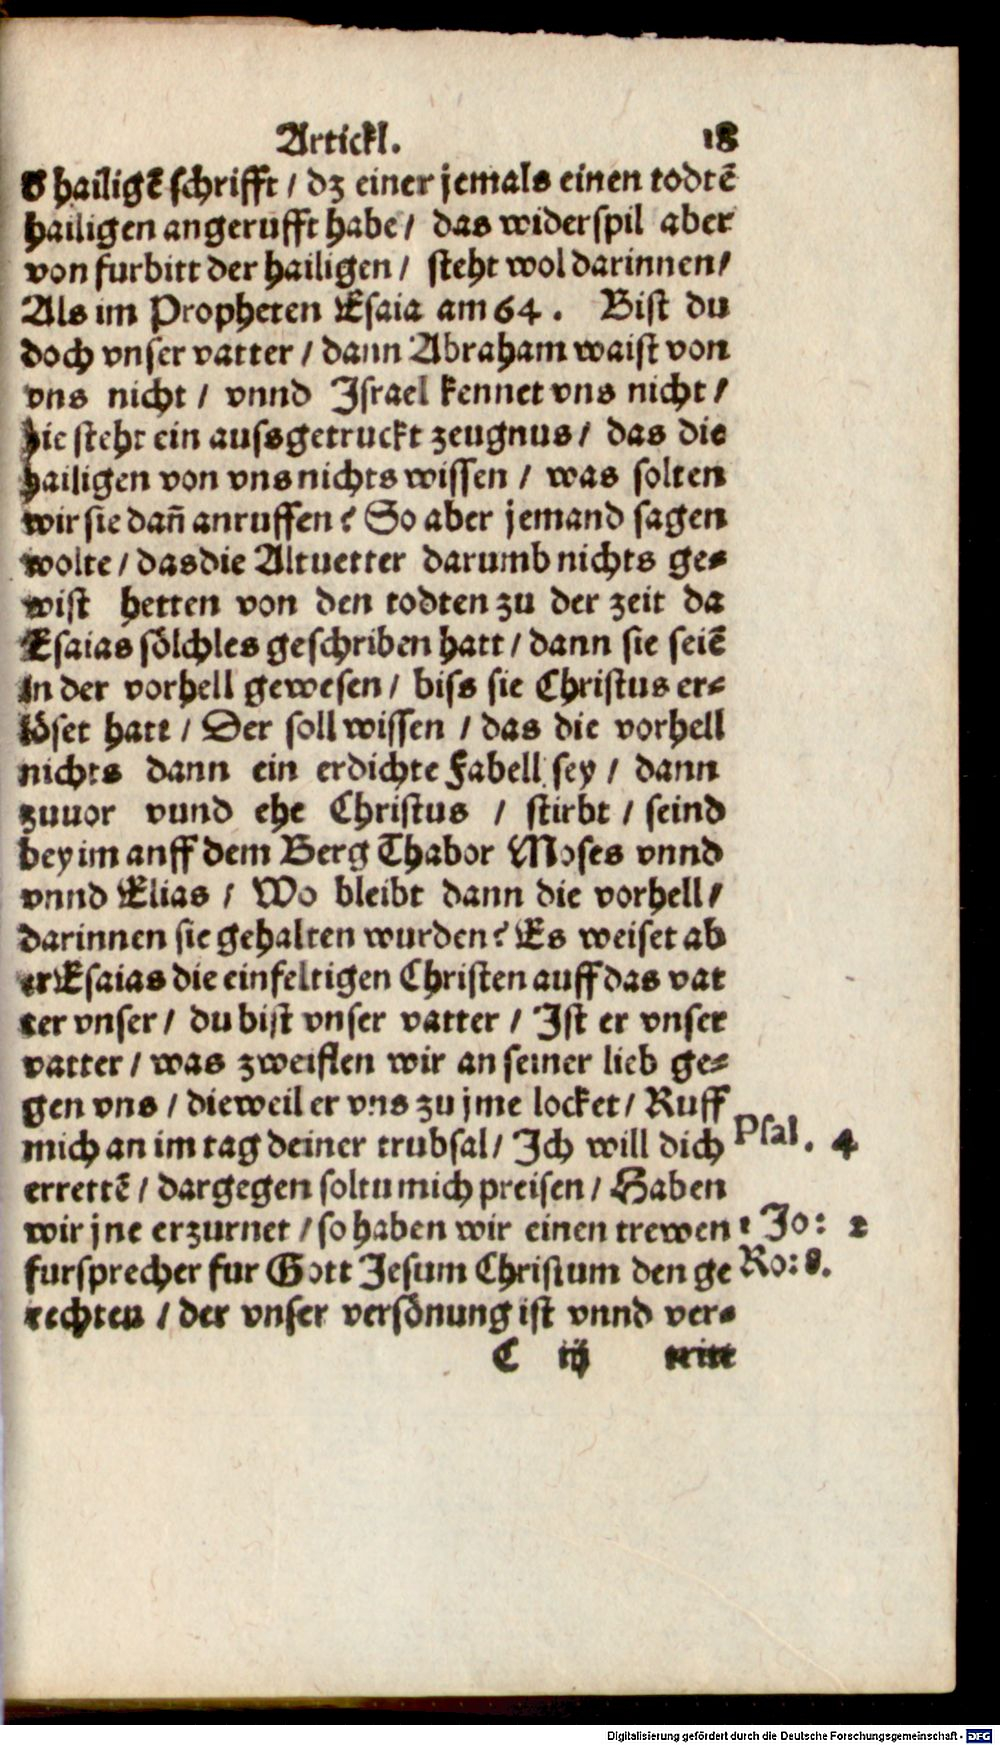 Artickl. 18
d hailigē schrifft / dz einer jemals einen todtē
hailigen angerufft habe / das widerspil aber
von furbitt der hailigen / steht wol darinnen /
Als im Propheten Esaia am 64. Bist du
doch vnser vatter / dann Abraham waist von
vns nicht / vnnd Israel kennet vns nicht /
hie steht ein aussgetruckt zeugnus / das die
hailigen von vns nichts wissen / was solten
wir sie dañ anruffen? So aber jemand sagen
wolte / das die Altuetter darumb nichts ge-
wist hetten von den todten zu der zeit da
Esaias sölchles geschriben hatt / dann sie seiē
in der vorhell gewesen / biss sie Christus er-
löset hatt / Der soll wissen / das die vorhell
nichts dann ein erdichte Fabell sey / dann
zuuor vund ehe Christus / stirbt / seind
bey im anff dem Berg Thabor Moses vnnd
vnnd Elias / Wo bleibt dann die vorhell /
darinnen sie gehalten wurden? Es weiset ab
er Esaias die einfeltigen Christen auff das vat
ter vnser / du bist vnser vatter / Ist er vnser
vatter / was zweiflen wir an seiner lieb ge-
gen vns / dieweil er vns zu jme locket / Ruff
mich an im tag deiner trubsal / Ich will dich Psal. 4
errettē / dargegen soltu mich preisen / Haben
wir jne erzurnet / so haben wir einen trewen 1 Jo: 2
fursprecher fur Gott Jesum Christum den ge Ro: 8.
rechten / der vnser versönung ist vnnd ver-
C iij tritt
Digitalisierung gefördert durch die Deutsche Forschungsgemeinschaft - DFG